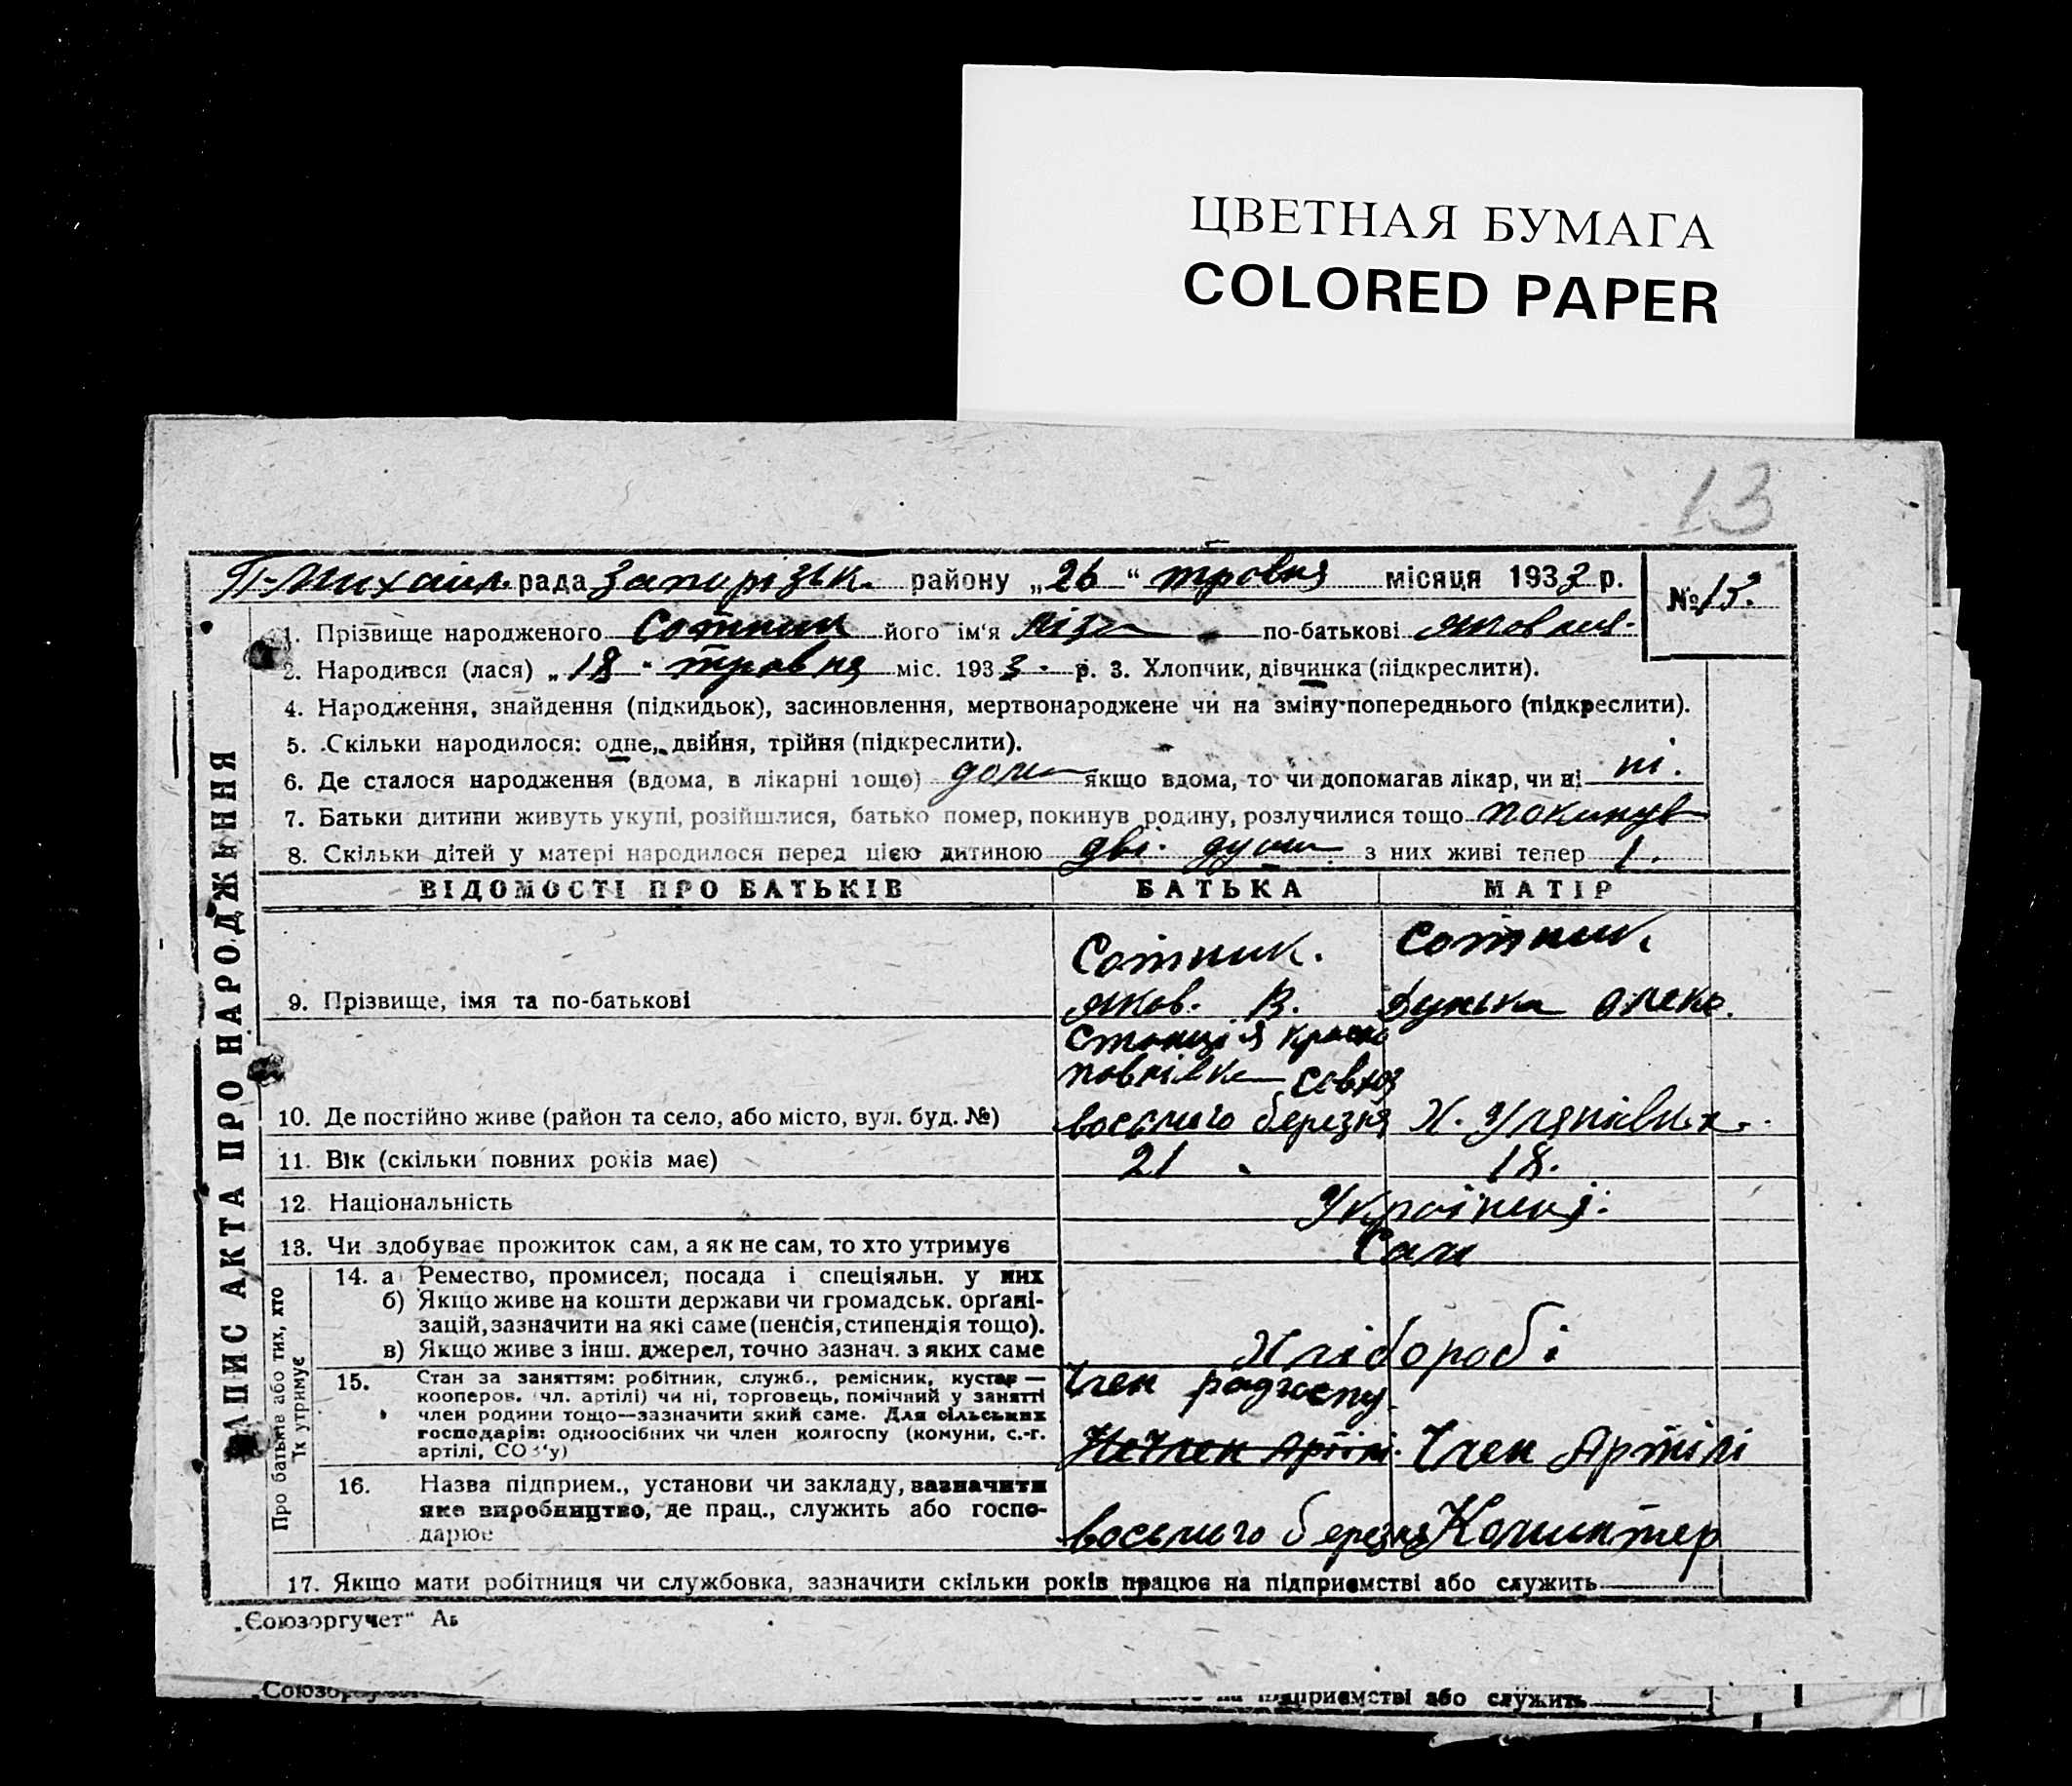 ЦВЕТНАЯ БУМАГА
COLORED PAPER
13
П-Михайл. рада Запорізьк. району „26“ травня місяця 1933 р.
№ 13.
1. Прізвище народженого Сотник його ім'я Ліза по-батькові Яковлів.
2. Народився (лася) „18“ травня міс. 1933 р. 3. Хлопчик, дівчинка (підкреслити).
4. Народження, знайдення (підкидьок), засиновлення, мертвонароджене чи на зміну попереднього (підкреслити).
5. Скільки народилося: одне, двійня, трійня (підкреслити).
6. Де сталося народження (вдома, в лікарні тощо) дома якщо вдома, то чи допомагав лікар, чи ні ні.
7. Батьки дитини живуть укупі, розійшлися, батько помер, покинув родину, розлучилися тощо покинув
8. Скільки дітей у матері народилося перед цією дитиною дві душі з них живі тепер 1.
ЗАПИС АКТА ПРО НАРОДЖЕННЯ
ВІДОМОСТІ ПРО БАТЬКІВ БАТЬКА МАТІР
Сотник. Сотник.
9. Прізвище, імя та по-батькові Яков. В. Дунька Олекс.
Станція Красно
павлівка совхоз
10. Де постійно живе (район та село, або місто, вул. буд. №) восьмого березня Х.
11. Вік (скільки повних років має) 21 18.
12. Національність Українці.
13. Чи здобуває прожиток сам, а як не сам, то хто утримує Сами
Про батьків або тих, хто
їх утримує
14. а Ремество, промисел, посада і спеціяльн. у них
б) Якщо живе на кошти держави чи громадськ. органі-
зацій, зазначити на які саме (пенсія, стипендія тощо).
в) Якщо живе з інш. джерел, точно зазнач. з яких саме Хлібороби
15. Стан за заняттям: робітник, служб., ремісник, кустар — Член радгоспу
кооперов. чл. артілі) чи ні, торговець, помічний у занятті
член родини тощо—зазначити який саме. Для сільських
господарів: одноосібних чи член колгоспу (комуни, с.-г. Нечлен Артілі. Член Артілі
артілі, СОЗ'у)
16. Назва підприєм., установи чи закладу, зазначити
яке виробництво, де прац., служить або госпо-
дарює восьмого березня Комінтер
17. Якщо мати робітниця чи службовка, зазначити скільки років працює на підприємстві або служить
„Союзоргучет“
підприємстві або служить